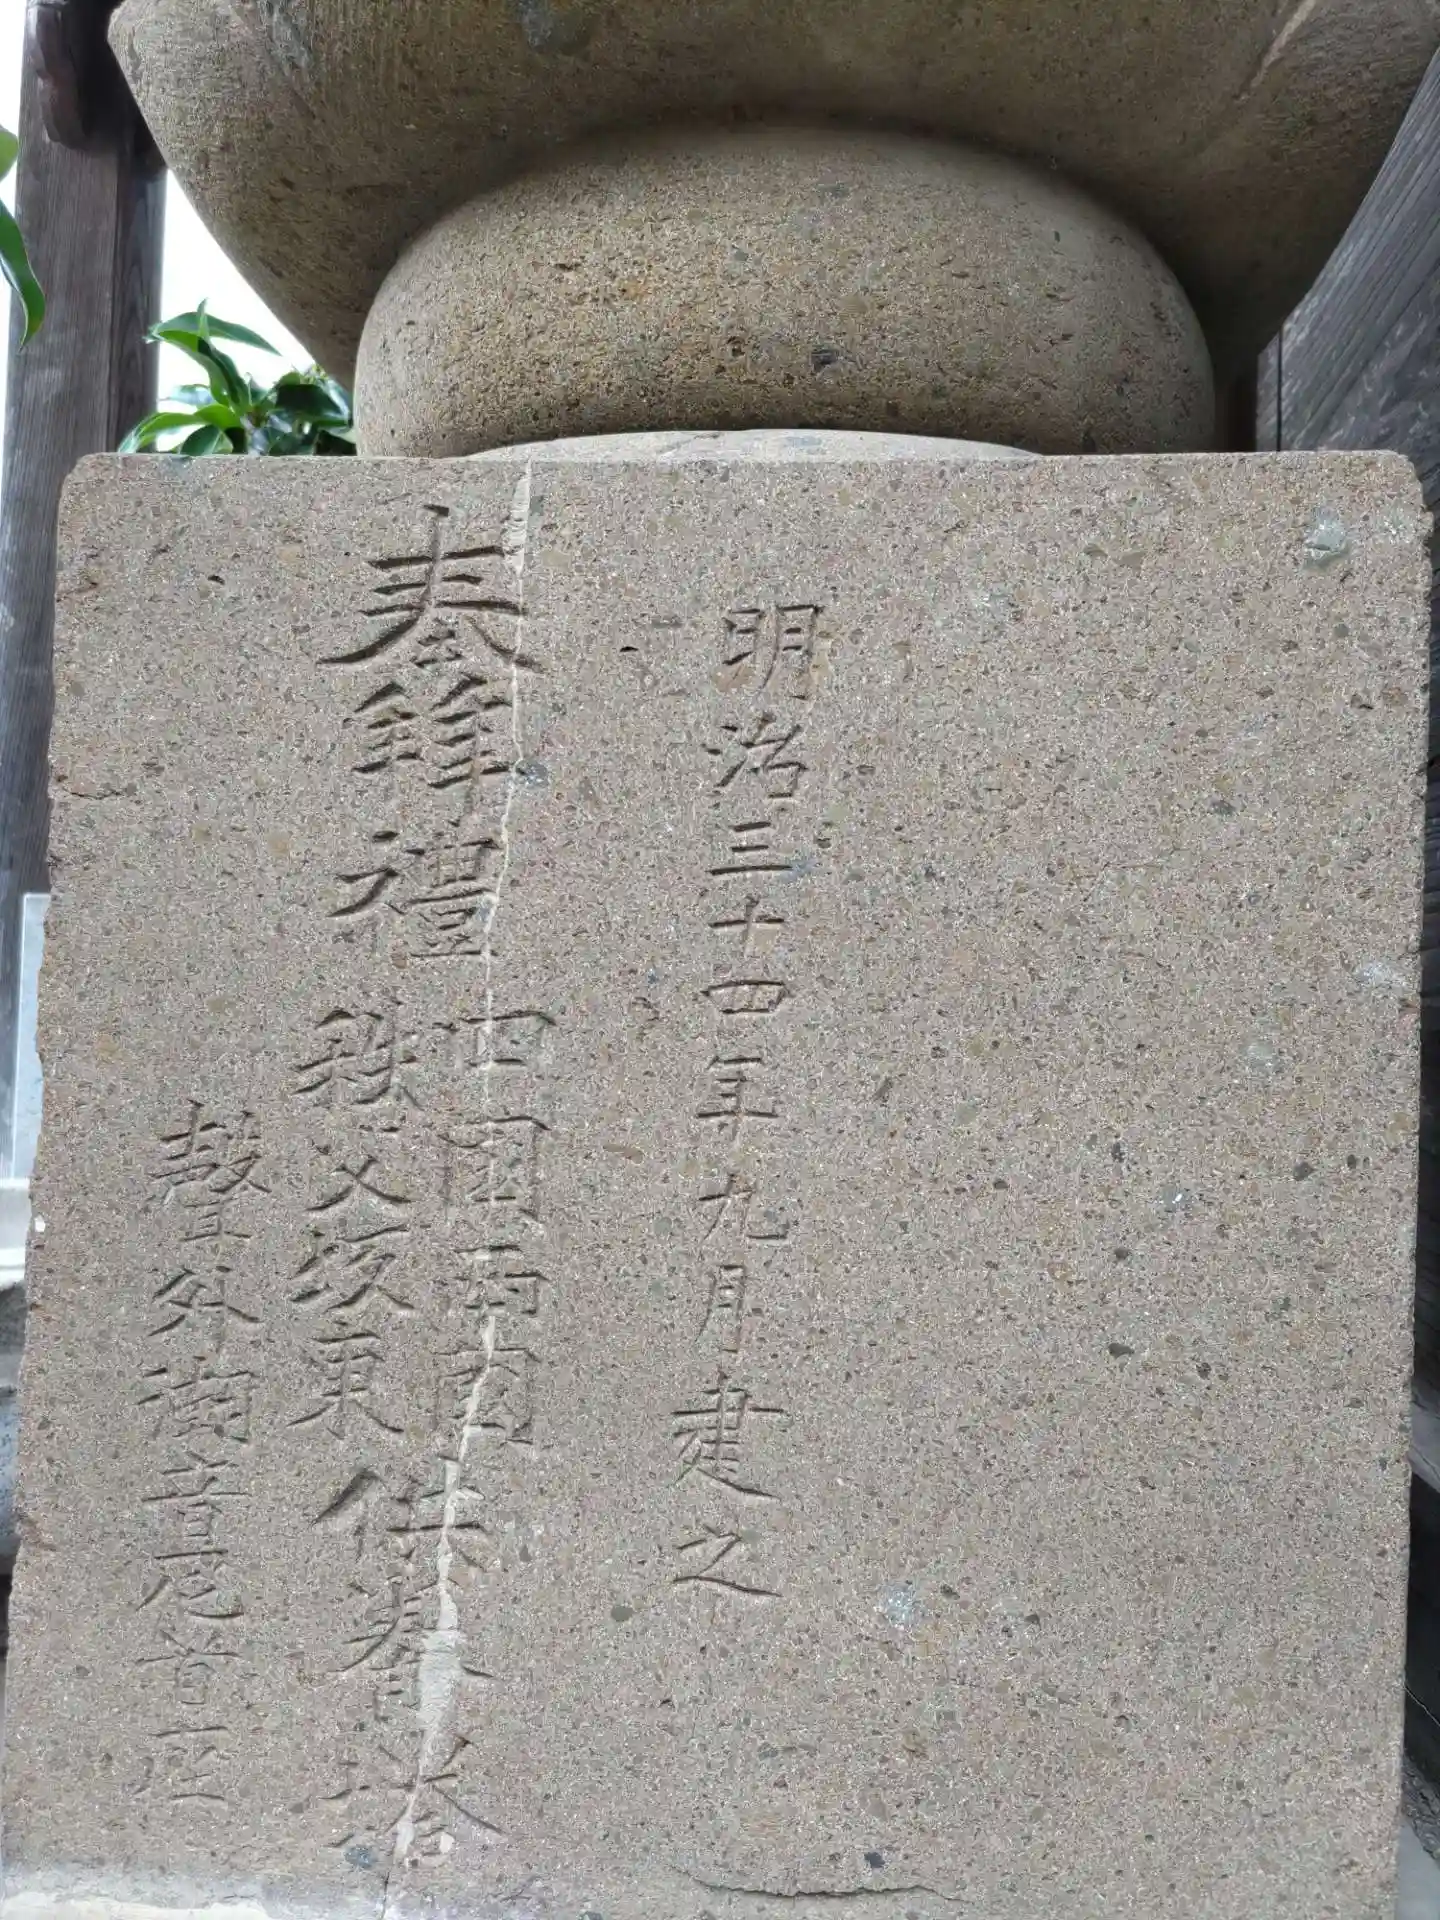 明治三十四年九月建之
奉拜禮
四國西國
秩父坂東
供養塔
聲外潮音尼首座